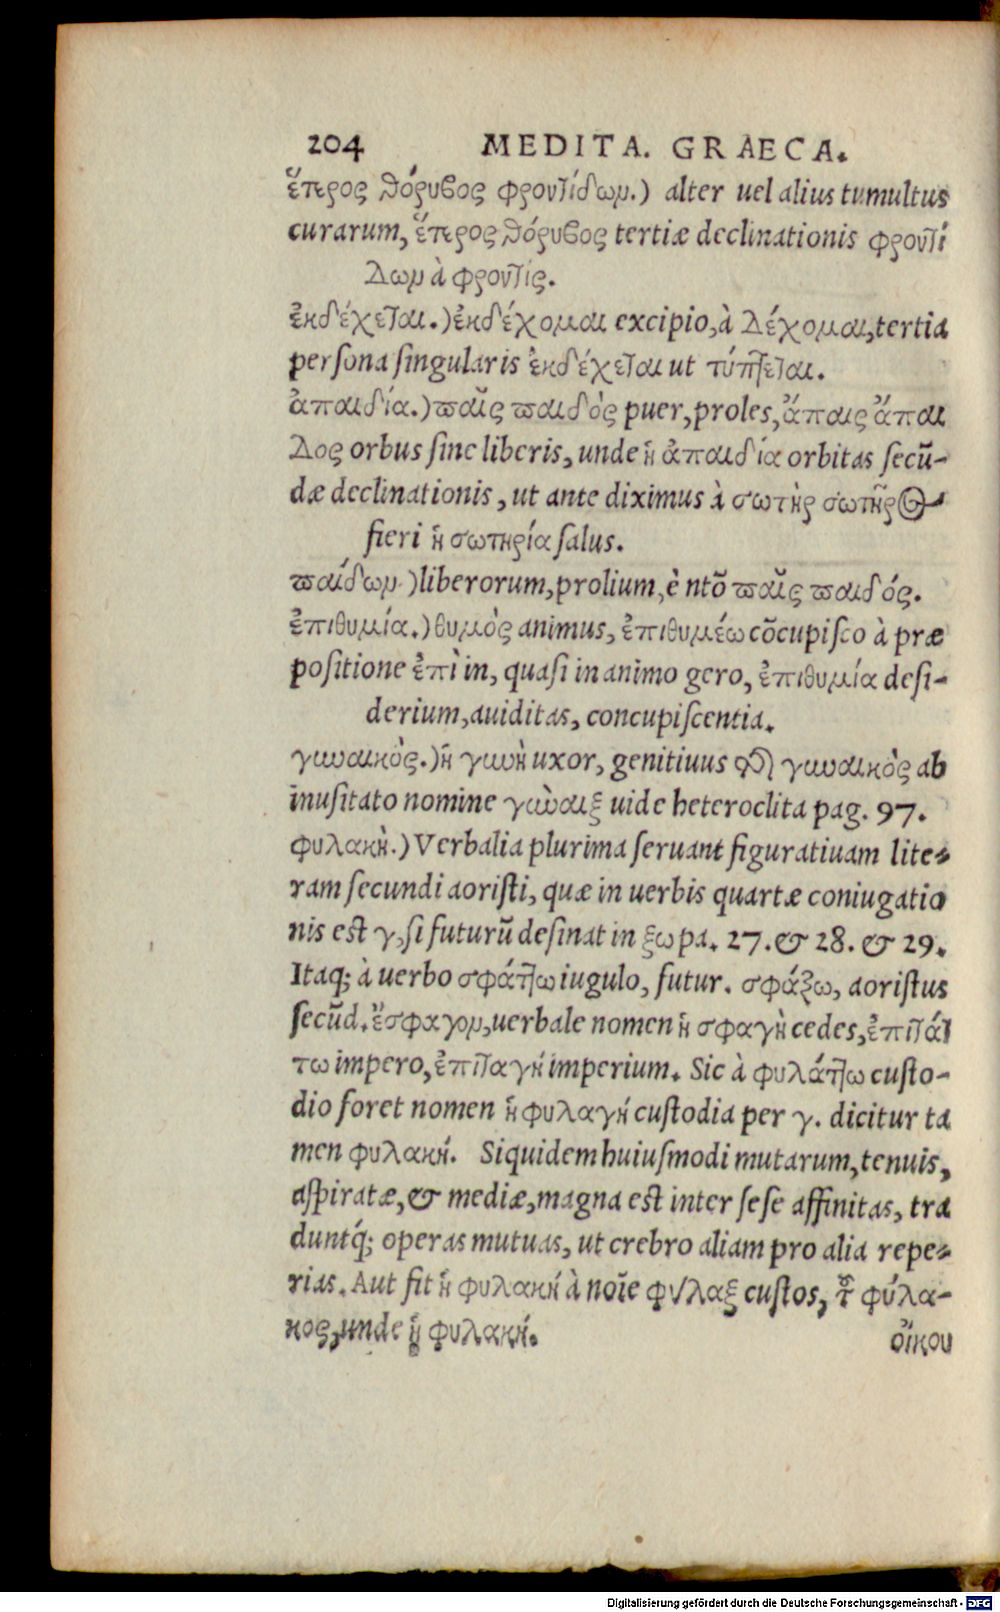 204 MEDITA. GRAECA.
ἕτερος θόρυβος φροντίδων.) alter uel alius tumultus
curarum, ἕτερος θόρυβος tertiæ declinationis φροντί
δων à φροντίς.
ἐκδέχεται.) ἐκδέχομαι excipio, à δέχομαι, tertia
persona singularis ἐκδέχεται ut τύπτεται.
ἀπαιδία.) παῖς παιδὸς puer, proles, ἄπαις ἄπαι
δος orbus sine liberis, unde ἡ ἀπαιδία orbitas secū-
dæ declinationis, ut ante diximus à σωτὴρ σωτῆρος
fieri ἡ σωτηρία salus.
παίδων.) liberorum, prolium, è ntō παῖς παιδός.
ἐπιθυμία.) θυμὸς animus, ἐπιθυμέω cōcupisco à præ
positione ἐπὶ in, quasi in animo gero, ἐπιθυμία desi-
derium, auiditas, concupiscentia.
γυναικὸς.) ἡ γυνὴ uxor, genitiuus τῆς γυναικὸς ab
inusitato nomine γύναιξ uide heteroclita pag. 97.
φυλακὴ.) Verbalia plurima seruant figuratiuam lite-
ram secundi aoristi, quæ in uerbis quartæ coniugatio
nis est γ, si futurū desinat in ξω pa. 27. & 28. & 29.
Itaq; à uerbo σφάττω iugulo, futur. σφάξω, aoristus
secūd. ἔσφαγον, uerbale nomen ἡ σφαγὴ cedes, ἐπιτάτ
τω impero, ἐπιταγή imperium. Sic à φυλάττω custo-
dio foret nomen ἡ φυλαγή custodia per γ. dicitur ta
men φυλακή. Siquidem huiusmodi mutarum, tenuis,
aspiratæ, & mediæ, magna est inter sese affinitas, tra
duntq́; operas mutuas, ut crebro aliam pro alia repe-
rias. Aut fit ἡ φυλακή à noīe φύλαξ custos, τοῦ φύλα-
κος, unde ἡ φυλακή.
οἴκου
Digitalisierung gefördert durch die Deutsche Forschungsgemeinschaft - DFG